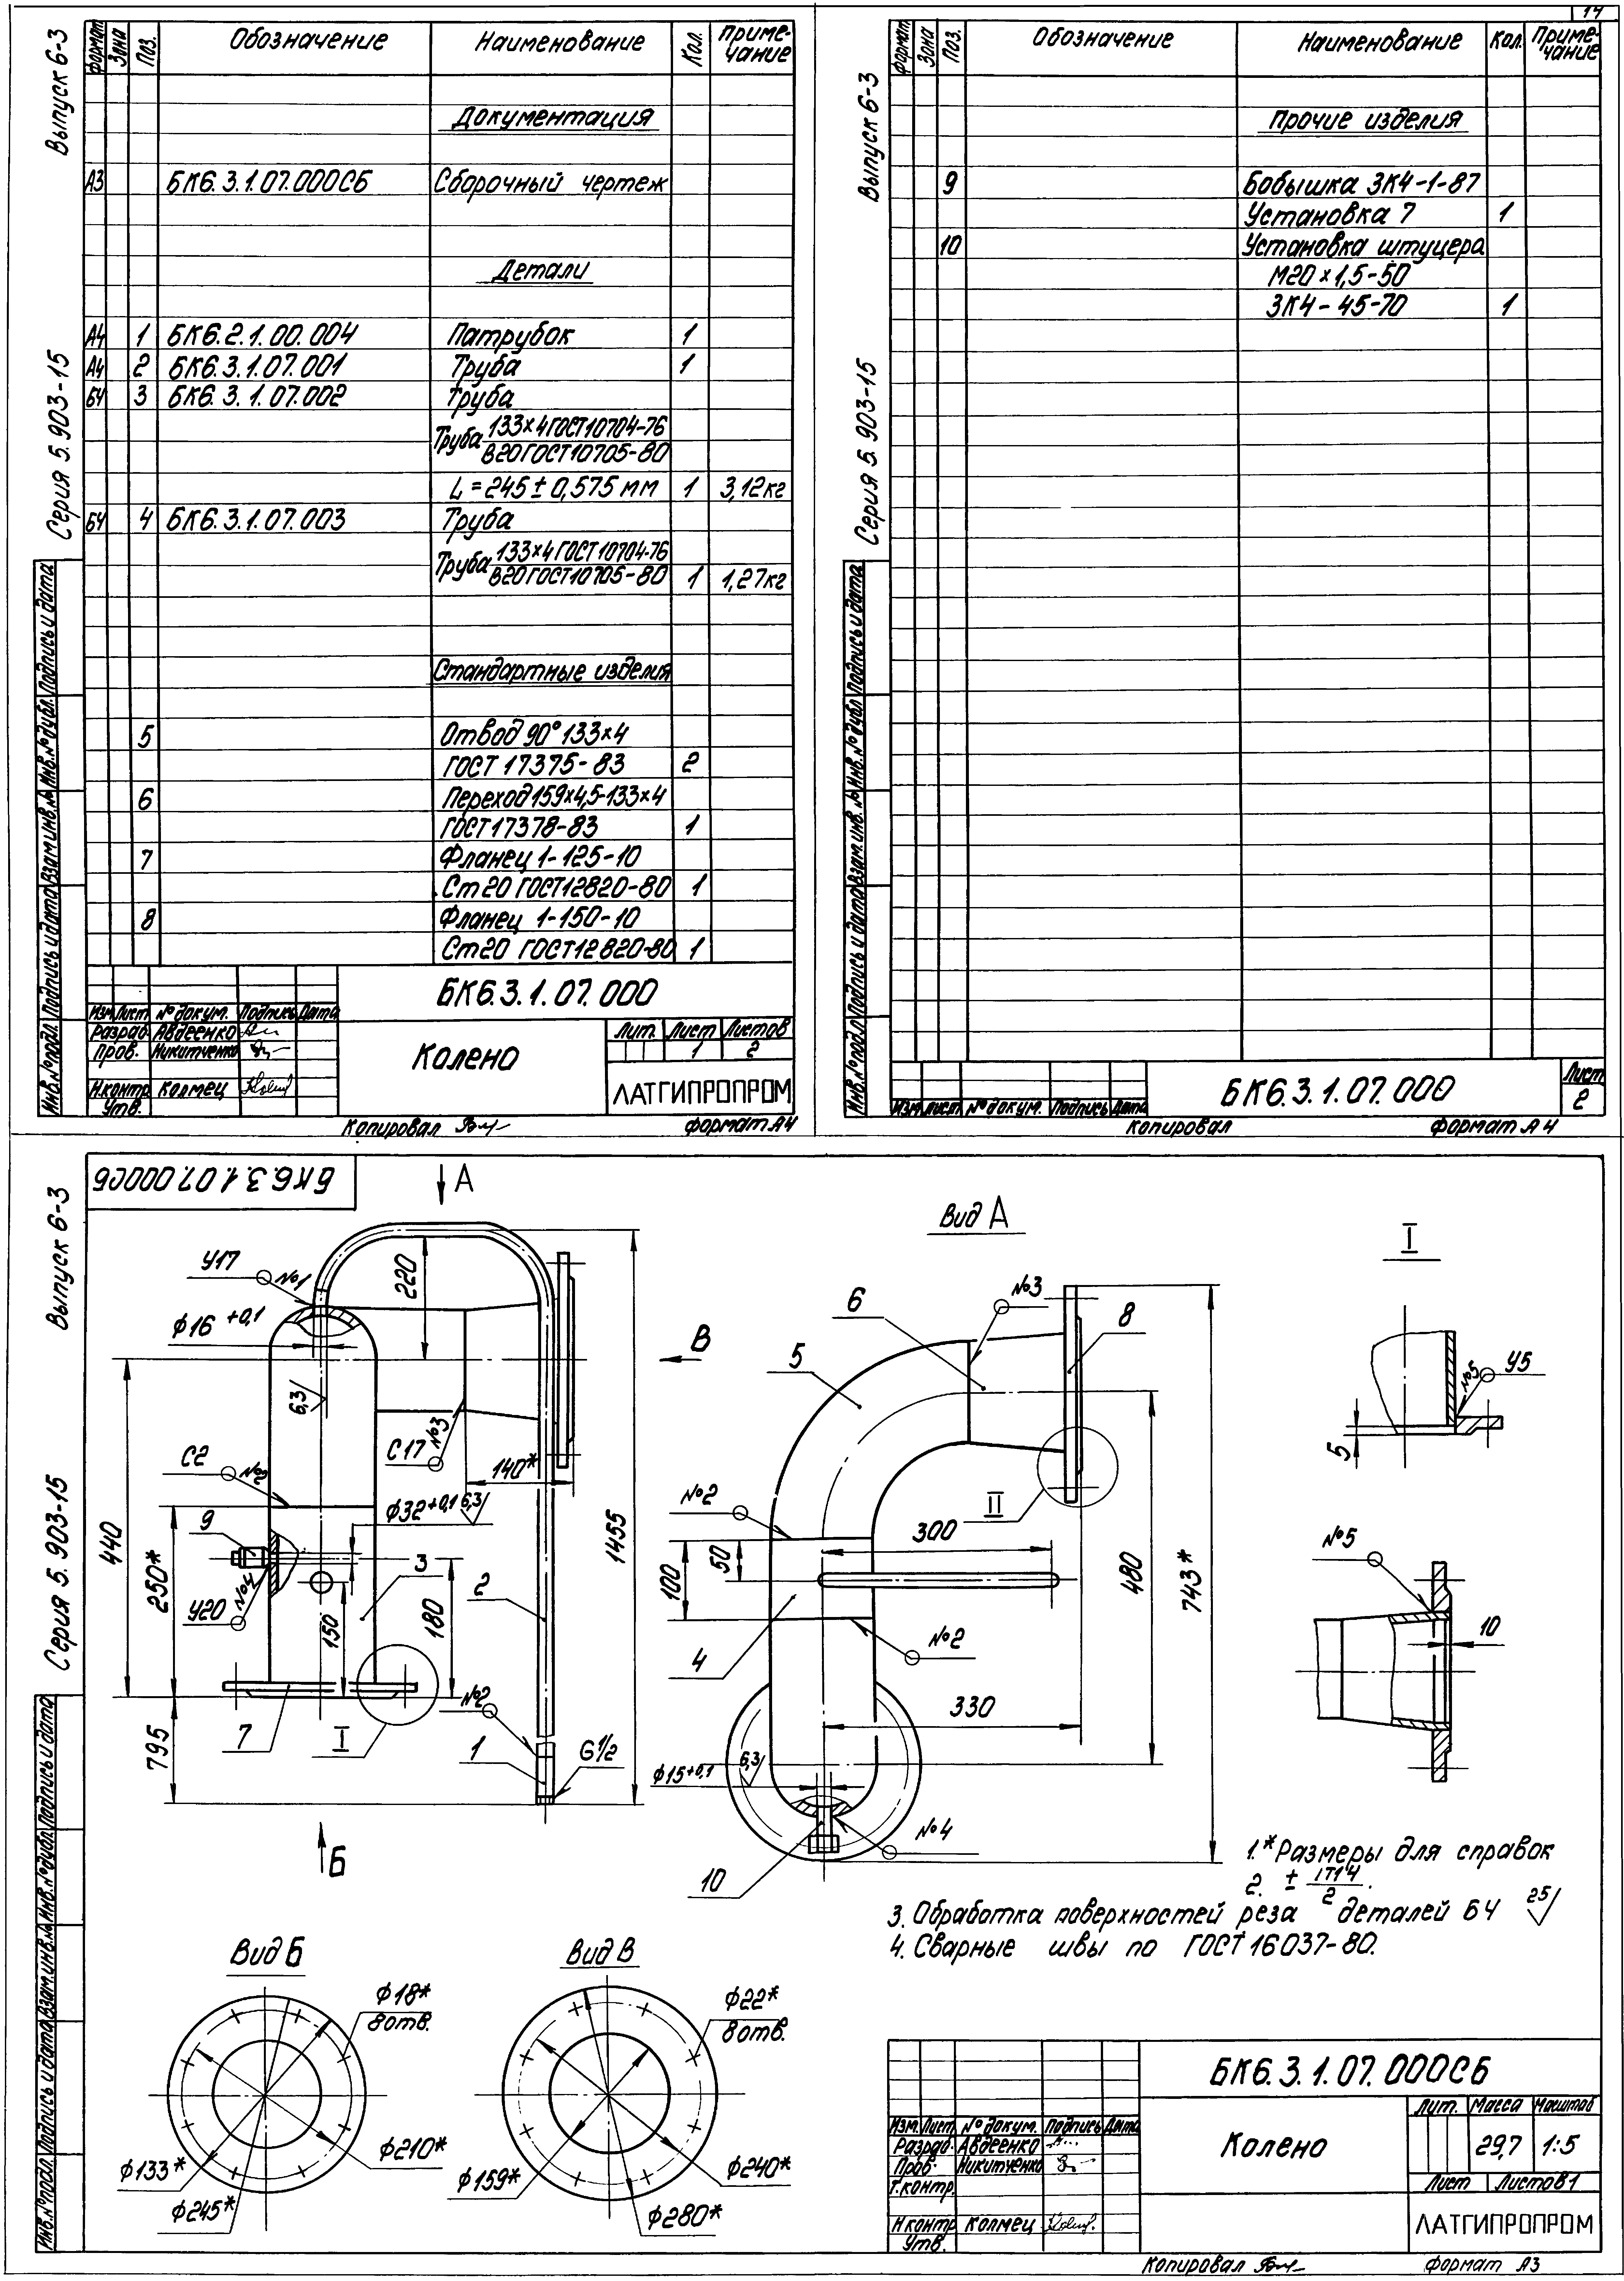 14
Выпуск 6-3
Серия 5.903-15
Формат Зона Поз. Обозначение Наименование Кол. Приме-чание
Документация
А3 БК6.3.1.07.000СБ Сборочный чертеж
Детали
А4 1 БК6.2.1.00.004 Патрубок 1
А4 2 БК6.3.1.07.001 Труба 1
БЧ 3 БК6.3.1.07.002 Труба
Труба 133×4 ГОСТ 10704-76
В20 ГОСТ 10705-80
L=245±0,575 мм 1 3,12кг
БЧ 4 БК6.3.1.07.003 Труба
Труба 133×4 ГОСТ 10704-76
В20 ГОСТ 10705-80 1 1,27кг
Стандартные изделия
5 Отвод 90° 133×4
ГОСТ 17375-83 2
6 Переход 159×4,5-133×4
ГОСТ 17378-83 1
7 Фланец 1-125-10
Ст20 ГОСТ 12820-80 1
8 Фланец 1-150-10
Ст20 ГОСТ 12820-80 1
Инв.№подл. Подпись и дата Взам.инв.№ Инв.№дубл. Подпись и дата
БК6.3.1.07.000
Изм Лист №докум. Подпись Дата
Разраб. Авдеенко
Пров. Никитченко
Н.контр Колмец
Утв.
Колено
Лит. Лист Листов
1 2
ЛАТГИПРОПРОМ
Копировал
Формат А4
Выпуск 6-3
Серия 5.903-15
Формат Зона Поз. Обозначение Наименование Кол. Приме-чание
Прочие изделия
9 Бобышка ЗК4-1-87
Установка 7 1
10 Установка штуцера
М20×1,5-50
ЗК4-45-70 1
Инв.№подл. Подпись и дата Взам.инв.№ Инв.№дубл. Подпись и дата
Изм Лист №докум. Подпись Дата
БК6.3.1.07.000
Лист
2
Копировал
Формат А4
Выпуск 6-3
Серия 5.903-15
БК6.3.1.07.000СБ
А
У17
№1
ф16 +0,1
6,3
220
В
С2
№2
С17
№3
140*
ф32+0,1
6,3
9
3
440
250*
У20
№4
150
180
2
1455
795
7
I
№2
1
G1/2
Б
Вид А
5
6
№3
8
II
№2
300
50
100
480
743*
4
№2
330
ф15+0,1
6,3
№4
10
I
У5
№5
5
№5
10
1.*Размеры для справок
2. ± IT14/2.
3. Обработка поверхностей реза деталей БЧ 25
4. Сварные швы по ГОСТ 16037-80.
Вид Б
ф18*
8отв.
ф133*
ф245*
ф210*
Вид В
ф22*
8отв.
ф159*
ф280*
ф240*
Инв.№подл. Подпись и дата Взам.инв.№ Инв.№дубл. Подпись и дата
БК6.3.1.07.000СБ
Изм. Лист №докум. Подпись Дата
Разраб. Авдеенко
Пров. Никитченко
Т.контр.
Н.контр Колмец
Утв.
Колено
Лит. Масса Масштаб
29,7 1:5
Лист Листов 1
ЛАТГИПРОПРОМ
Копировал
Формат А3